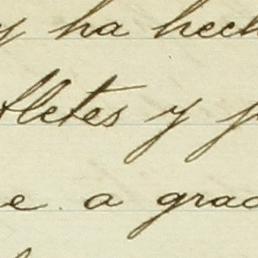 y ha hech
lletes y p
e a grac